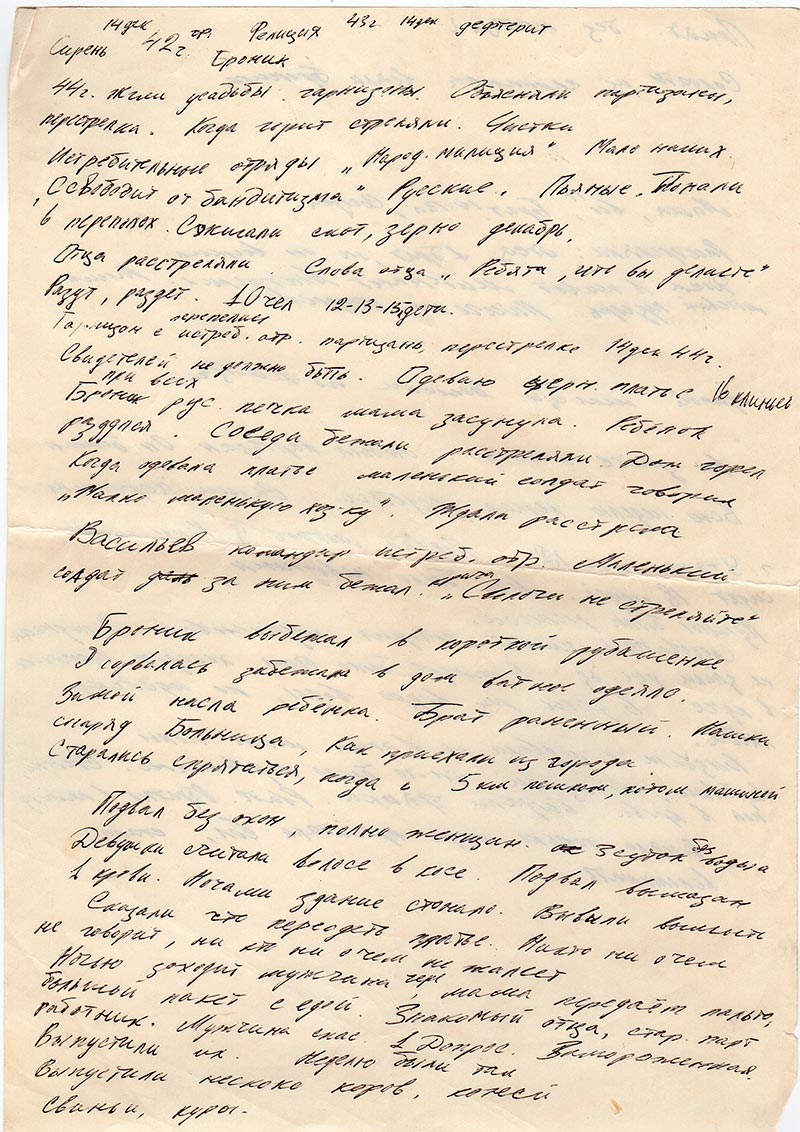 14 дек гр. Релиция 43г 14 дек дефтерит
Сирень 42г. Броник
44г. жгли усадьбы гарнизоны. Объясняли партизаны,
перестрелка. Когда горит стреляли. Чистка
Истребительные отряды "Народ. милиция" Мало наших.
"Освободит от бандитизма" Русские. Пьяные. Попали
в переполох. Сжигали скот, зерно декабрь,
Отца расстреляли. Слова отца "Ребята, что вы делаете"
Разут, раздет. 10 чел 12-13-15, дети.
Гарнизон с перепелись истреб. отр. партизань, перестрелка 14 дек 44г.
Свидетелей не должно быть. Одеваю черн. платье 16 клиньев
Броник при всех рус. печка мама засунула. Ребёнок
раздулся. Соседи бежали расстреляли. Дом горел
Когда одевала платье маленький солдат говорил
"Жалко маленькую хоз-ку". Ждала расстрела
Васильев командир истреб. отр. Маленький
солдат за ним бежал. крича "Сволочи не стреляйте"
Броник выбежал в короткой рубашенке
Я сорвалась забежала в дом ватное одеяло.
Зимой несла ребёнка. Брат раненный. Нашки
снаряд Больница, Как приехали из города
Старались спрятаться, когда с 5 км пешком, потом машиной
Подвал без окон полно женщин. 3 суток без воды
Девушки считала волосе в косе. Подвал вымазан
в крови. Ночами здание стонало. Вывыли
Сказали что переодеть платье. Никто ни о чем
не говорит, ни кто ни о чем не жалеет
Ночью заходит мужчина, мама передаёт пальто,
большой пакет с едой. Знакомый отца, стар. парт
работник. Мужчина спас. 1 Допрос. Замороженная.
Выпустили их. Неделю были там
Выпустили несколо коров, кони
свиньи, куры.